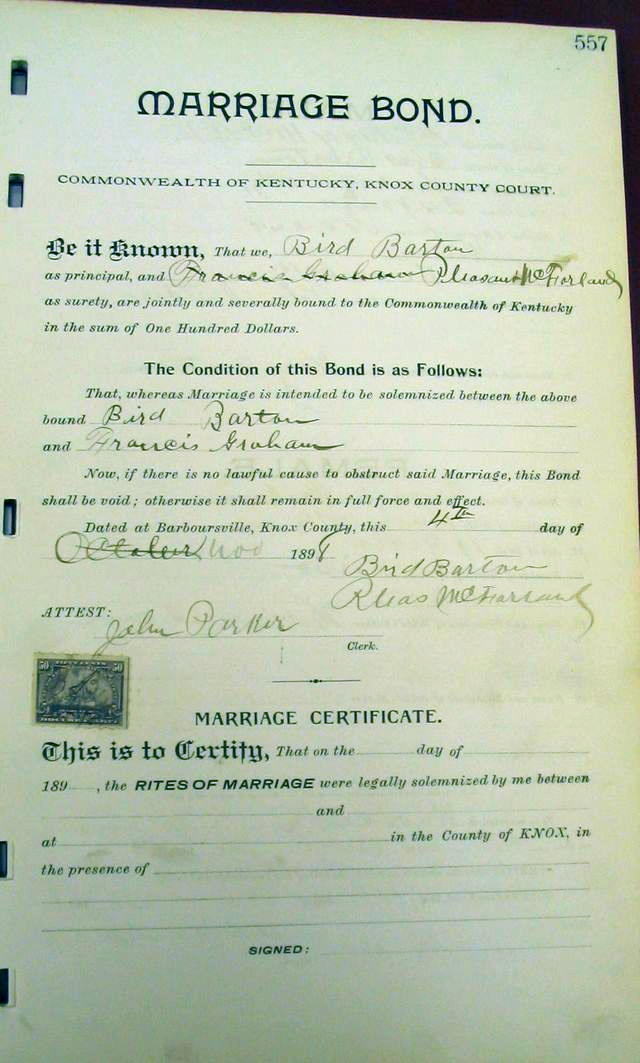 557
MARRIAGE BOND.
COMMONWEALTH OF KENTUCKY, KNOX COUNTY COURT.
Be it Known, That we, Bird Barton
as principal, and Francis Graham Pleasant McFarland
as surety, are jointly and severally bound to the Commonwealth of Kentucky
in the sum of One Hundred Dollars.
The Condition of this Bond is as Follows:
That, whereas Marriage is intended to be solemnized between the above
bound Bird Barton
and Francis Graham
Now, if there is no lawful cause to obstruct said Marriage, this Bond
shall be void; otherwise it shall remain in full force and effect.
Dated at Barboursville, Knox County, this 4th day of
October Nov 1898
Bird Barton
Pleas McFarland
ATTEST:
John Parker
Clerk.
50 50
MARRIAGE CERTIFICATE.
This is to Certify, That on the day of
189 , the RITES OF MARRIAGE were legally solemnized by me between
and
at in the County of KNOX, in
the presence of
SIGNED: